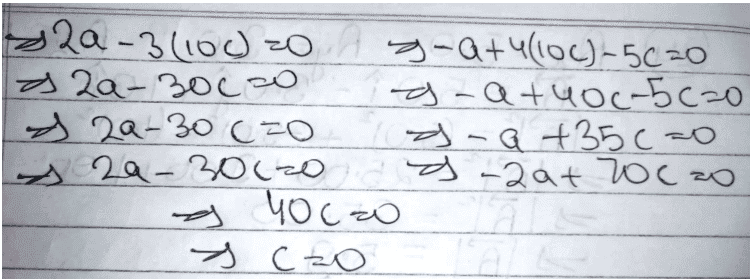 ⇒ 2a - 3(10c) = 0    ⇒ -a + 4(10c) - 5c = 0
⇒ 2a - 30c = 0    ⇒ -a + 40c - 5c = 0
⇒ 2a - 30c = 0    ⇒ -a + 35c = 0
⇒ 2a - 30c = 0    ⇒ -2a + 70c = 0
⇒ 40c = 0
⇒ c = 0